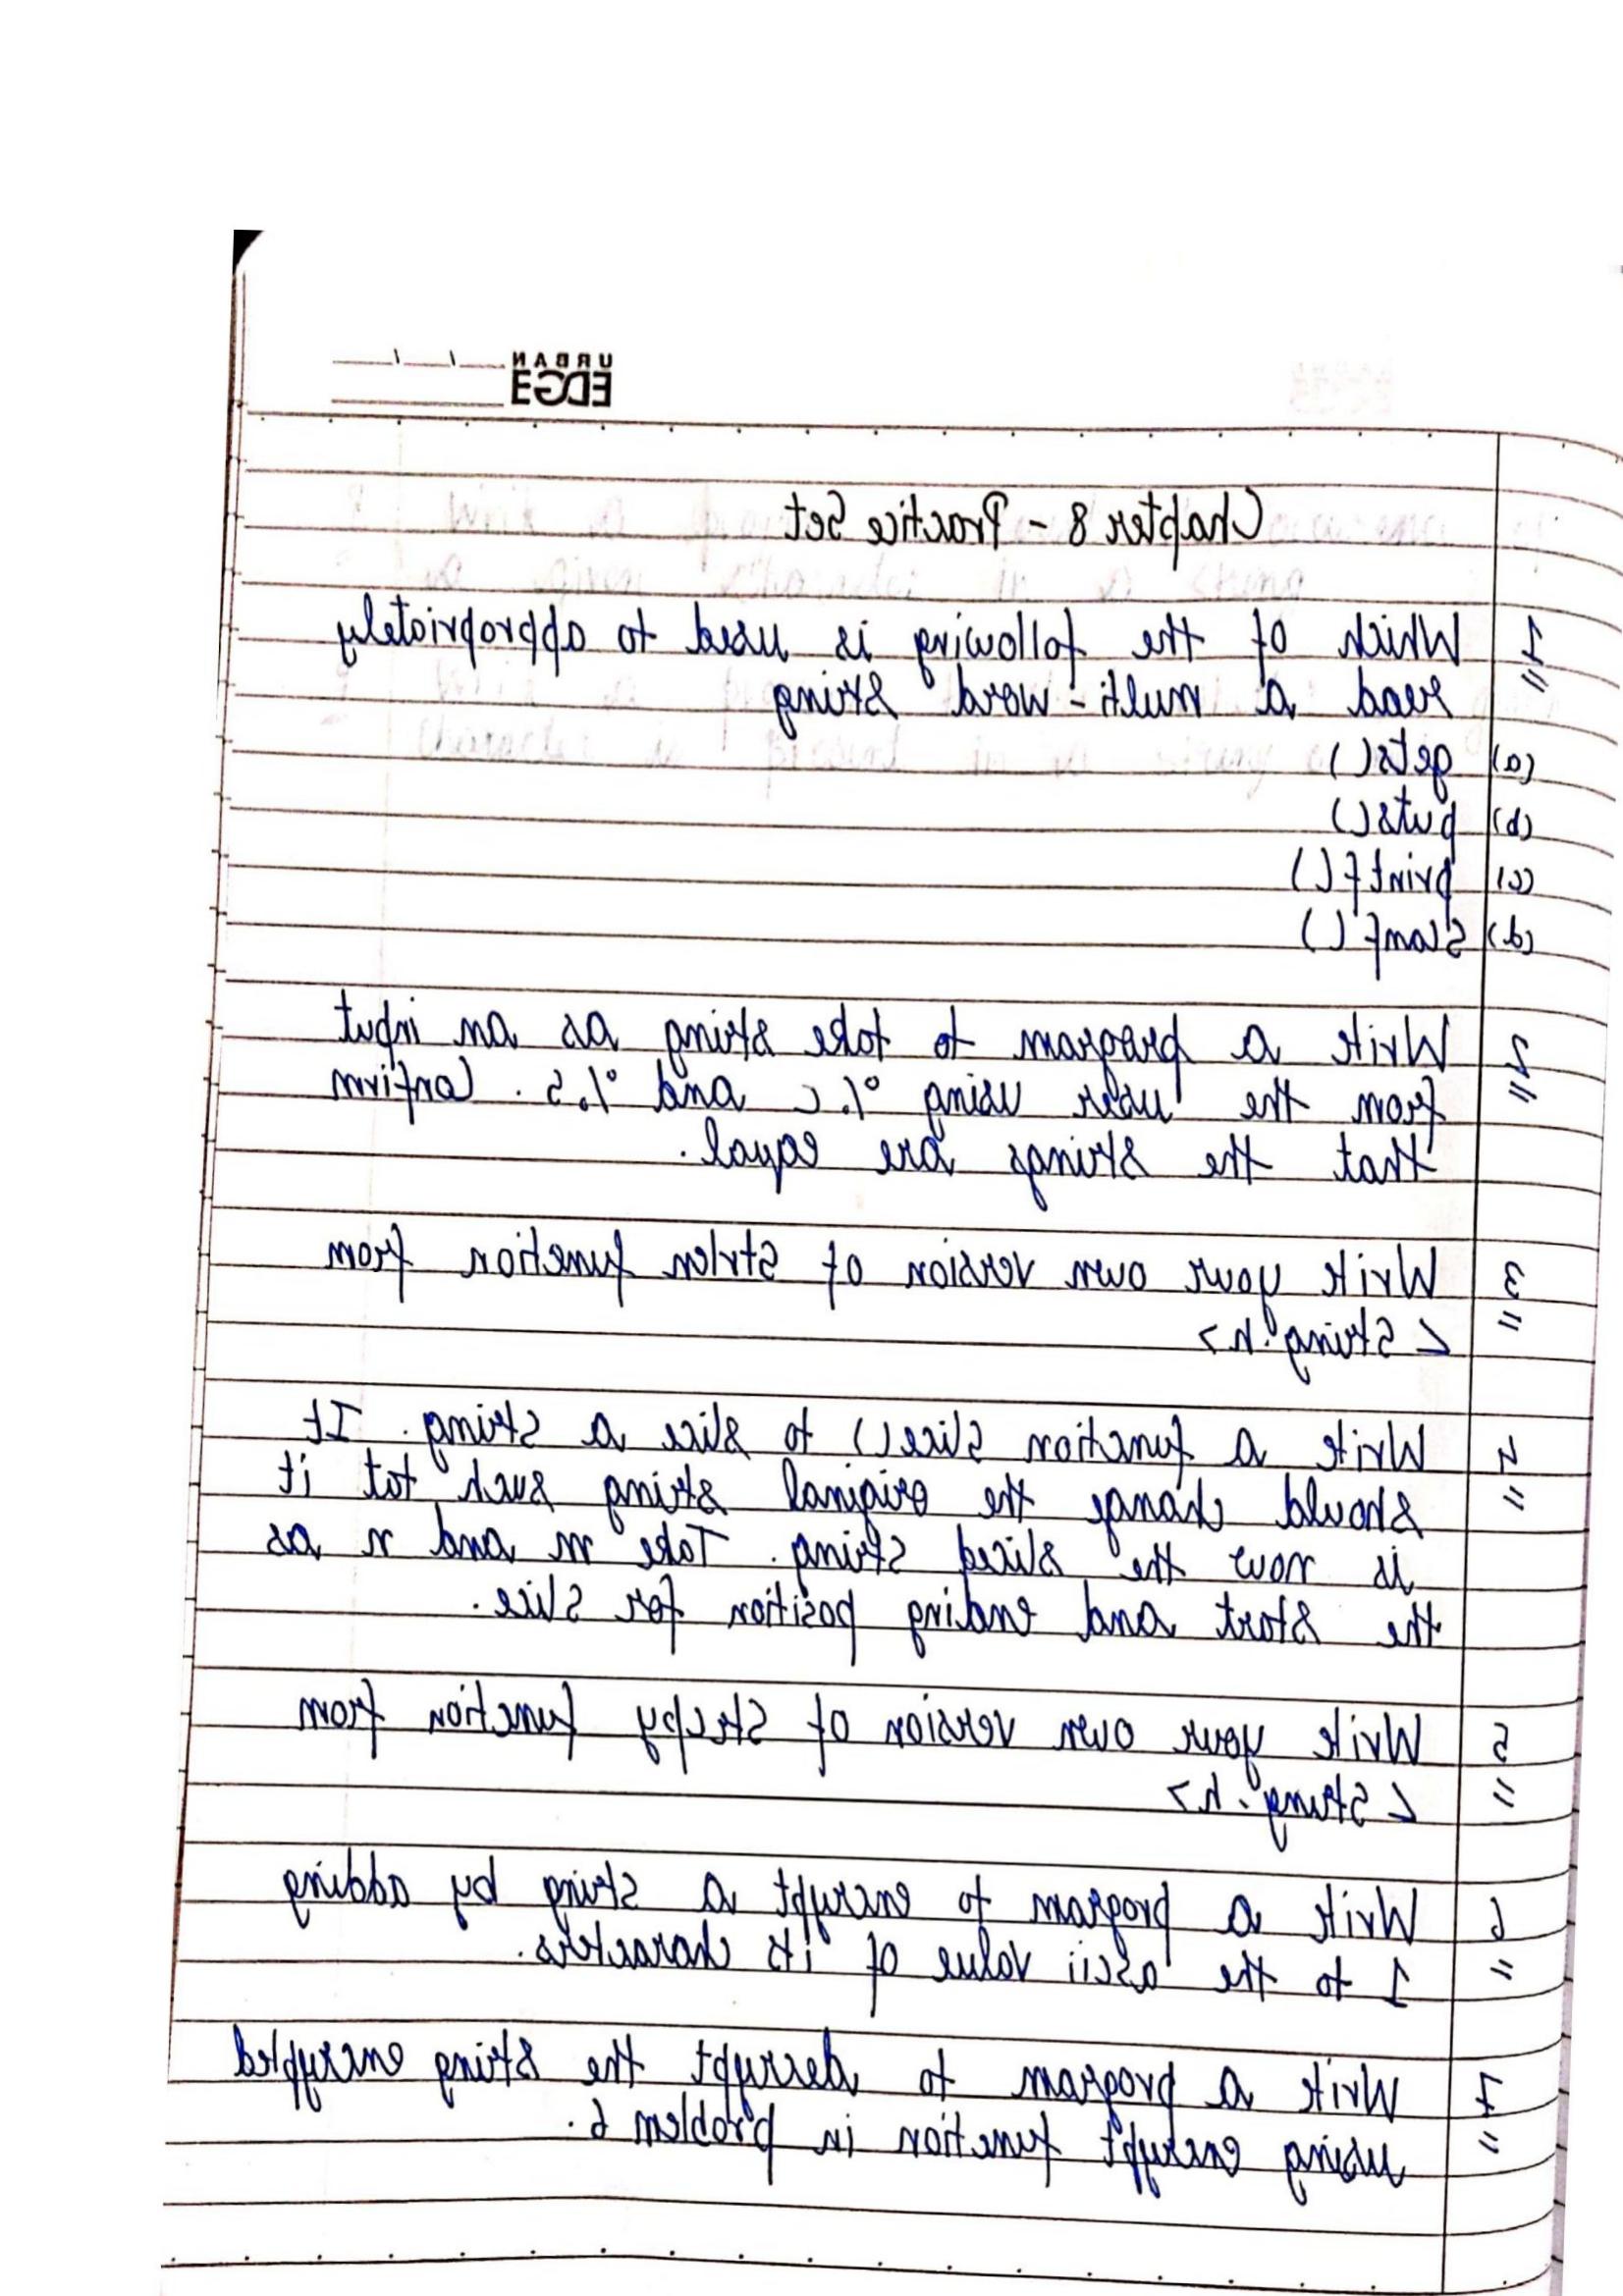 URBAN
EDGE
Chapter 8 - Practice Set
1 Which of the following is used to appropriately
read a multi-word string
(a) gets()
(b) puts()
(c) printf()
(d) Scanf()
2 Write a program to take string as an input
from the user using %c and %s. Confirm
that the strings are equal.
3 Write your own version of strlen function from
<String.h>
4 Write a function slice() to slice a string. It
should change the original string such tat it
is now the sliced string. Take m and n as
the start and ending position for slice.
5 Write your own version of strcpy function from
<String.h>
6 Write a program to encrypt a string by adding
1 to the ascii value of its characters.
7 Write a program to decrypt the string encrypted
using encrypt function in problem 6.